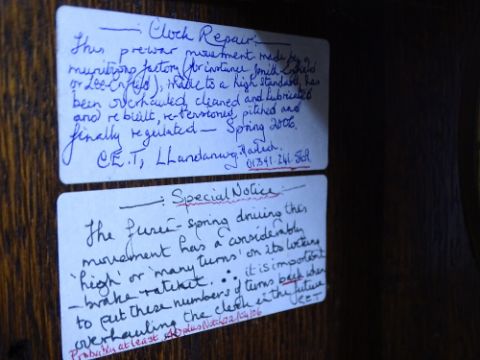 —: Clock Repair:—
This pre-war movement made by a
munitions factory (for instance Smith-Enfield
or Lee-Enfield), made to a high standard, has
been overhauled, cleaned and lubricated
and rebuilt, re-tensioned, pitched and
finally regulated — Spring 2006.
C.E.T, Llandanwg, Harlech.
01341-241-
—: Special Notice :—
The fusee-spring driving this
movement has a considerably
'high' or 'many turns' on its locking
-brake ratchet. ∴ it is important
to put these numbers of turns back when
overhauling the clock in the future
C.E.T
Probably at least